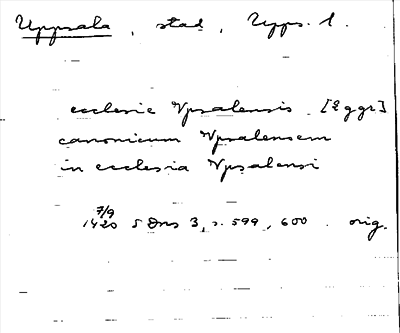 Uppsala, stad, Upps. l.
ecclesie Vpsalensis [2 ggr]
canonicum Vpsalensem
in ecclesia Vpsalensi
7/9
1420 SDns 3, s. 599, 600. orig.